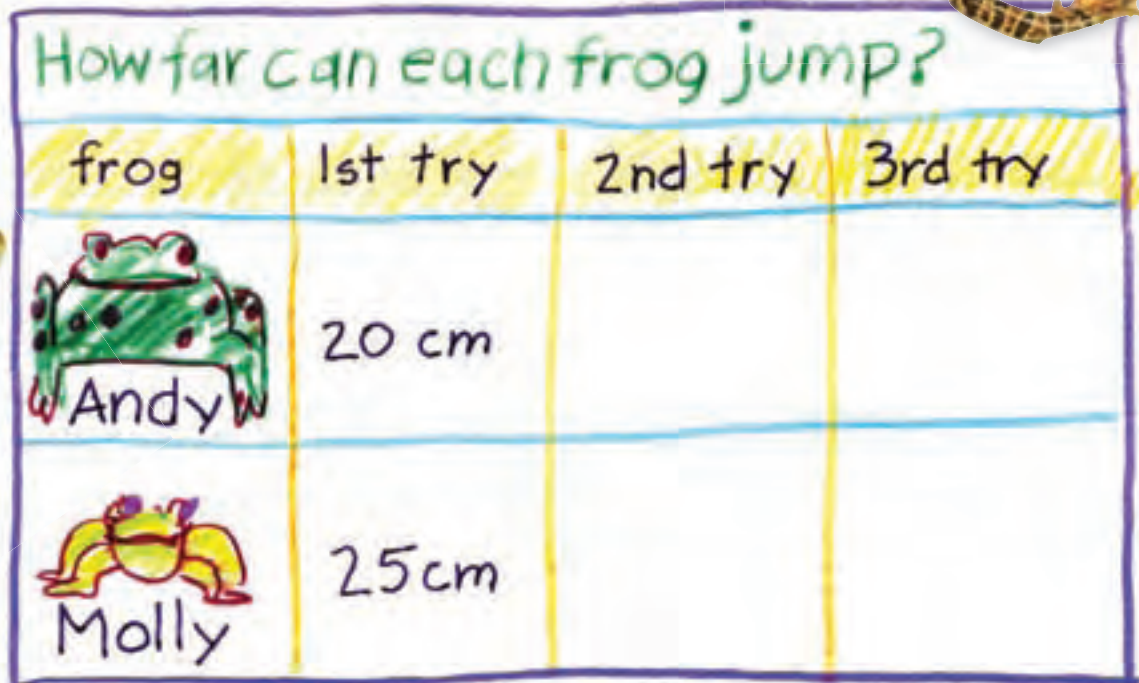 How far can each frog jump?
frog 1st try 2nd try 3rd try
20 cm
Andy
25cm
Molly